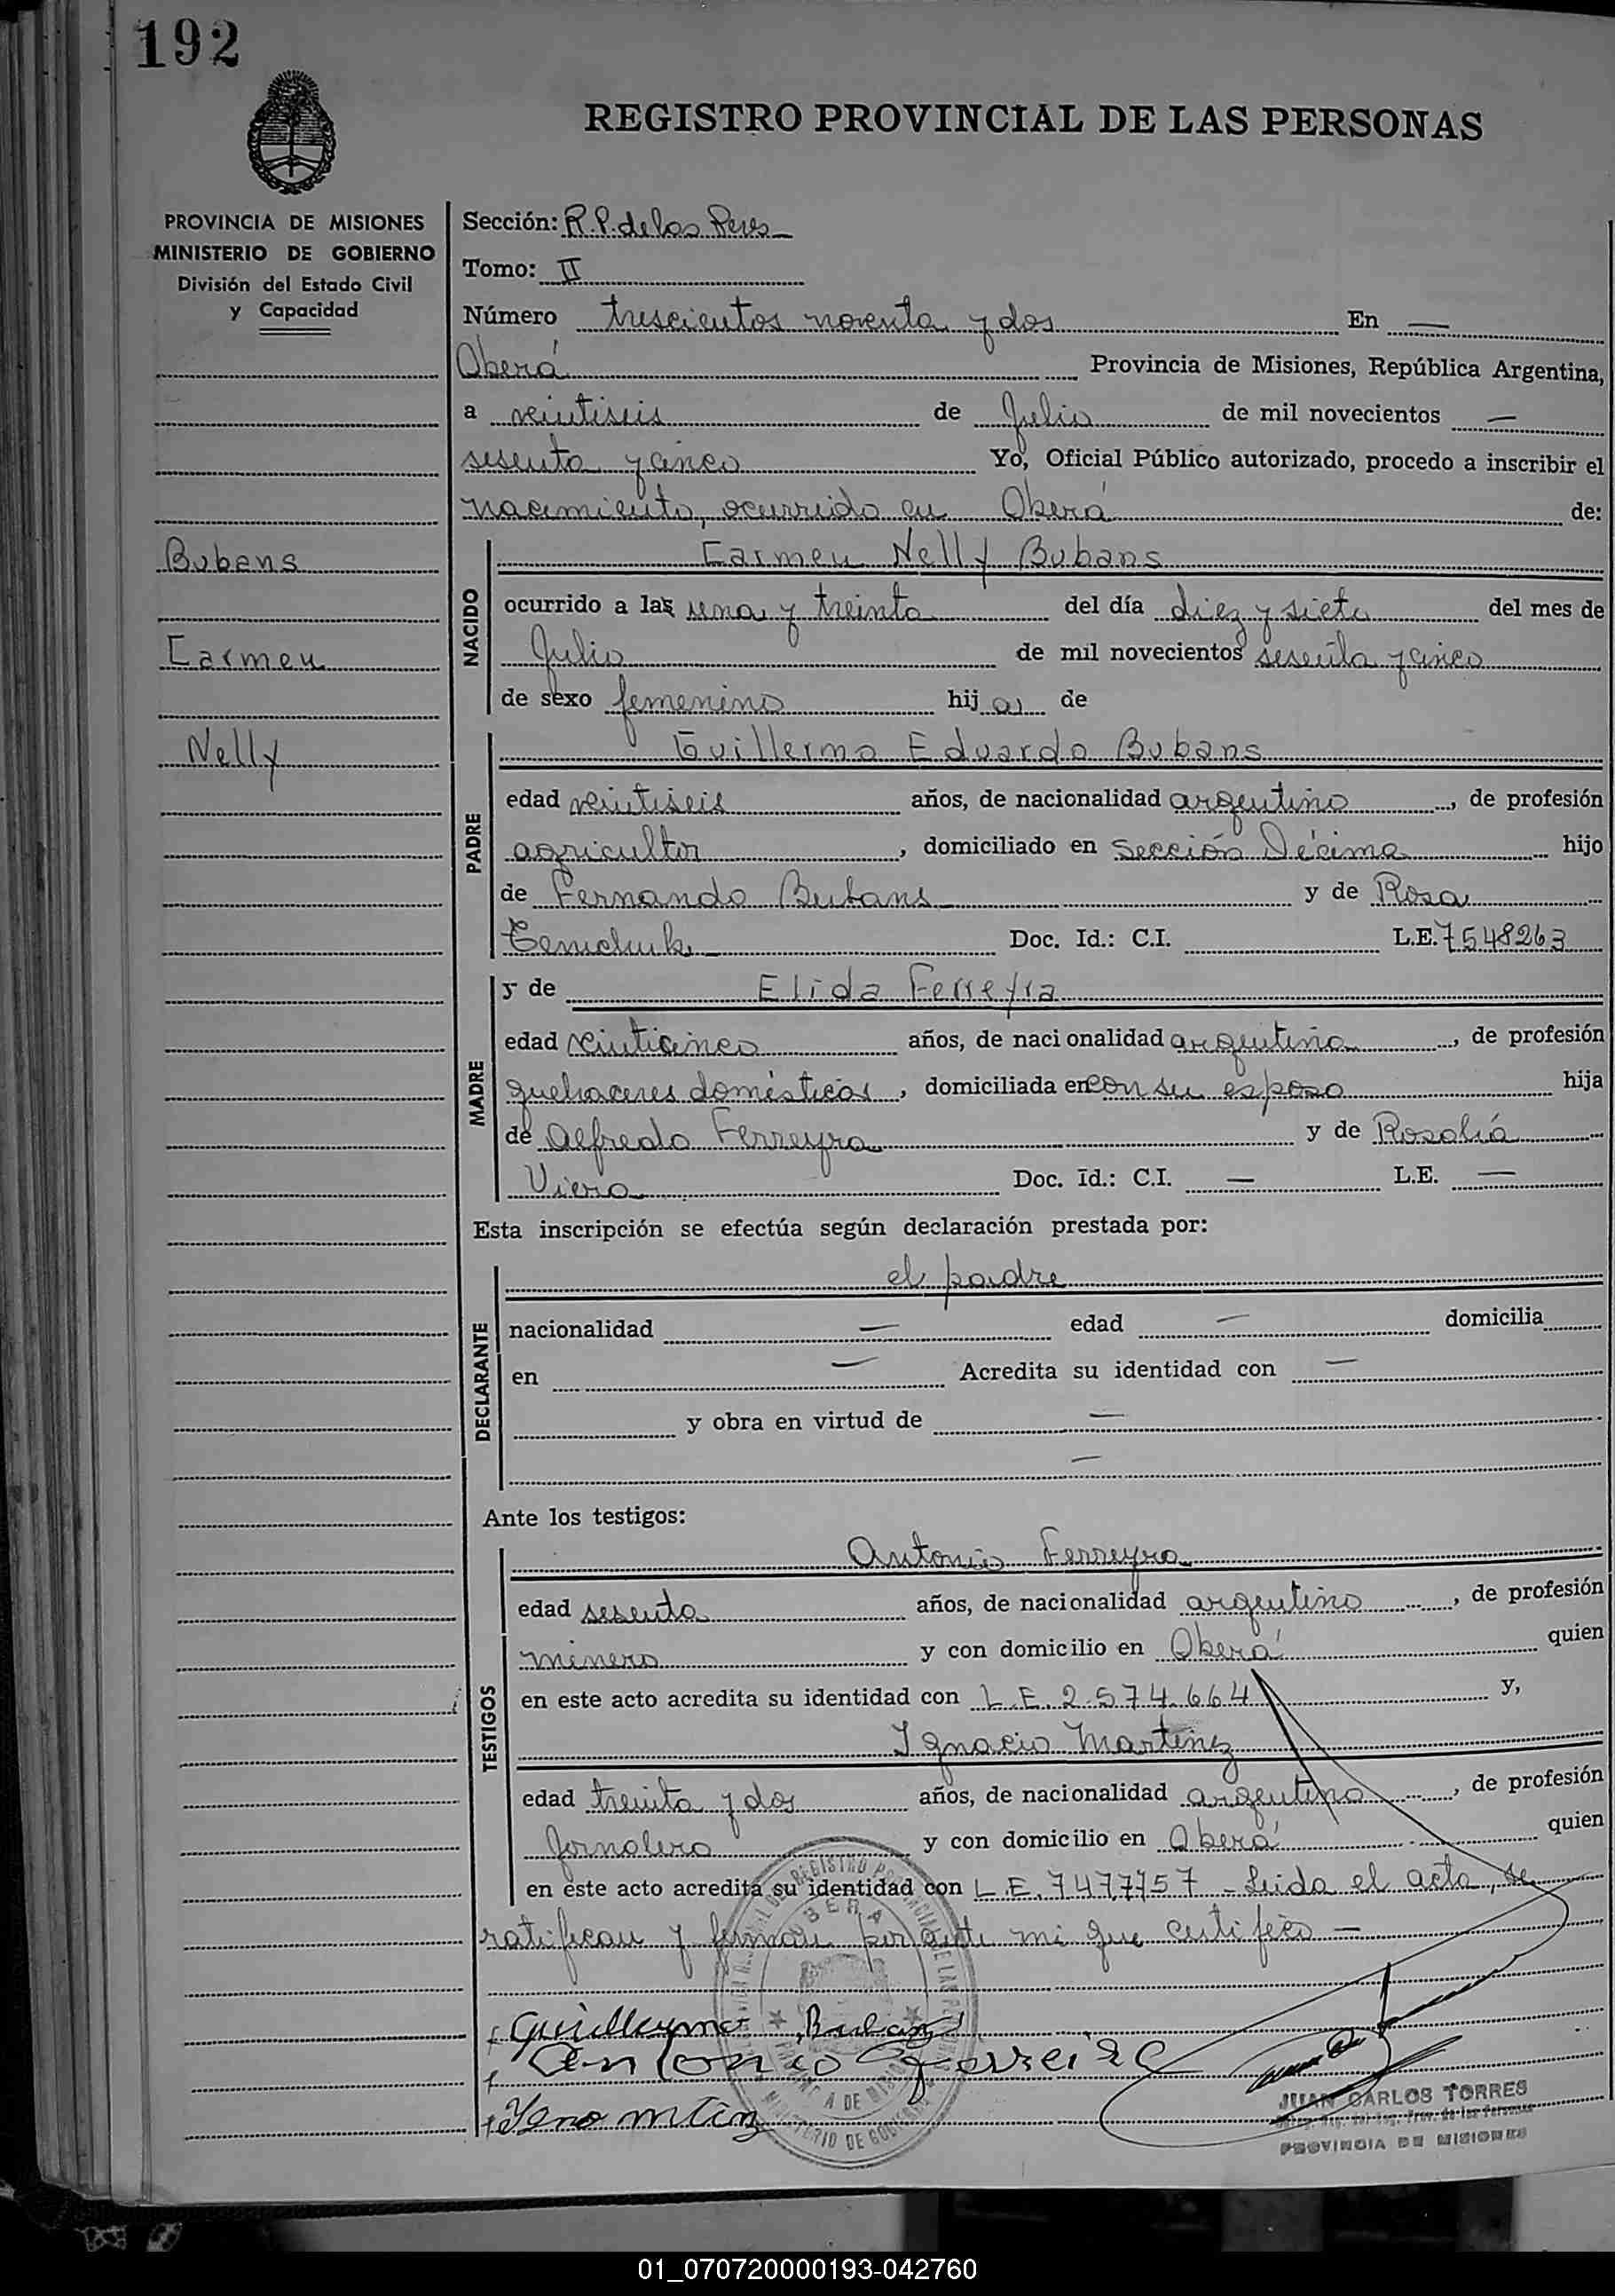 192
REGISTRO PROVINCIAL DE LAS PERSONAS
PROVINCIA DE MISIONES
MINISTERIO DE GOBIERNO
División del Estado Civil
y Capacidad
Bubans
Carmen
Nelly
Sección: R.P. de las Pers
Tomo: II
Número trescientos noventa y dos En —
Oberá Provincia de Misiones, República Argentina,
a veintiseis de Julio de mil novecientos —
sesenta y cinco Yo, Oficial Público autorizado, procedo a inscribir el
nacimiento, ocurrido en Oberá de:
NACIDO
Carmen Nelly Bubans
ocurrido a las una y treinta del día diez y siete del mes de
Julio de mil novecientos sesenta y cinco
de sexo femenino hija de
PADRE
Guillermo Eduardo Bubans
edad veintiseis años, de nacionalidad argentino, de profesión
agricultor, domiciliado en Sección Décima hijo
de Fernando Bubans y de Rosa
Doc. Id.: C.I. L.E. 7548263
MADRE
y de Elida Ferreyra
edad veinticinco años, de nacionalidad argentina, de profesión
quehaceres domésticos, domiciliada en con su esposo hija
de Alfredo Ferreyra y de Rosalía
Viera Doc. Id.: C.I. — L.E. —
Esta inscripción se efectúa según declaración prestada por:
DECLARANTE
el padre
nacionalidad — edad — domicilia
en — Acredita su identidad con —
y obra en virtud de —
—
Ante los testigos:
TESTIGOS
Antonio Ferreyra
edad sesenta años, de nacionalidad argentino, de profesión
minero y con domicilio en Oberá quien
en este acto acredita su identidad con L.E. 2.574.664 y,
Ignacio Martinez
edad treinta y dos años, de nacionalidad argentino, de profesión
jornalero y con domicilio en Oberá quien
en este acto acredita su identidad con L.E. 7477757 - Leida el acta, se
ratifican y firman por ante mi que certifico —
Guillermo Bubans
Antonio Ferreira
JUAN CARLOS TORRES
PROVINCIA DE MISIONES
OBERA
MINISTERIO DE GOBIERNO
01_070720000193-042760